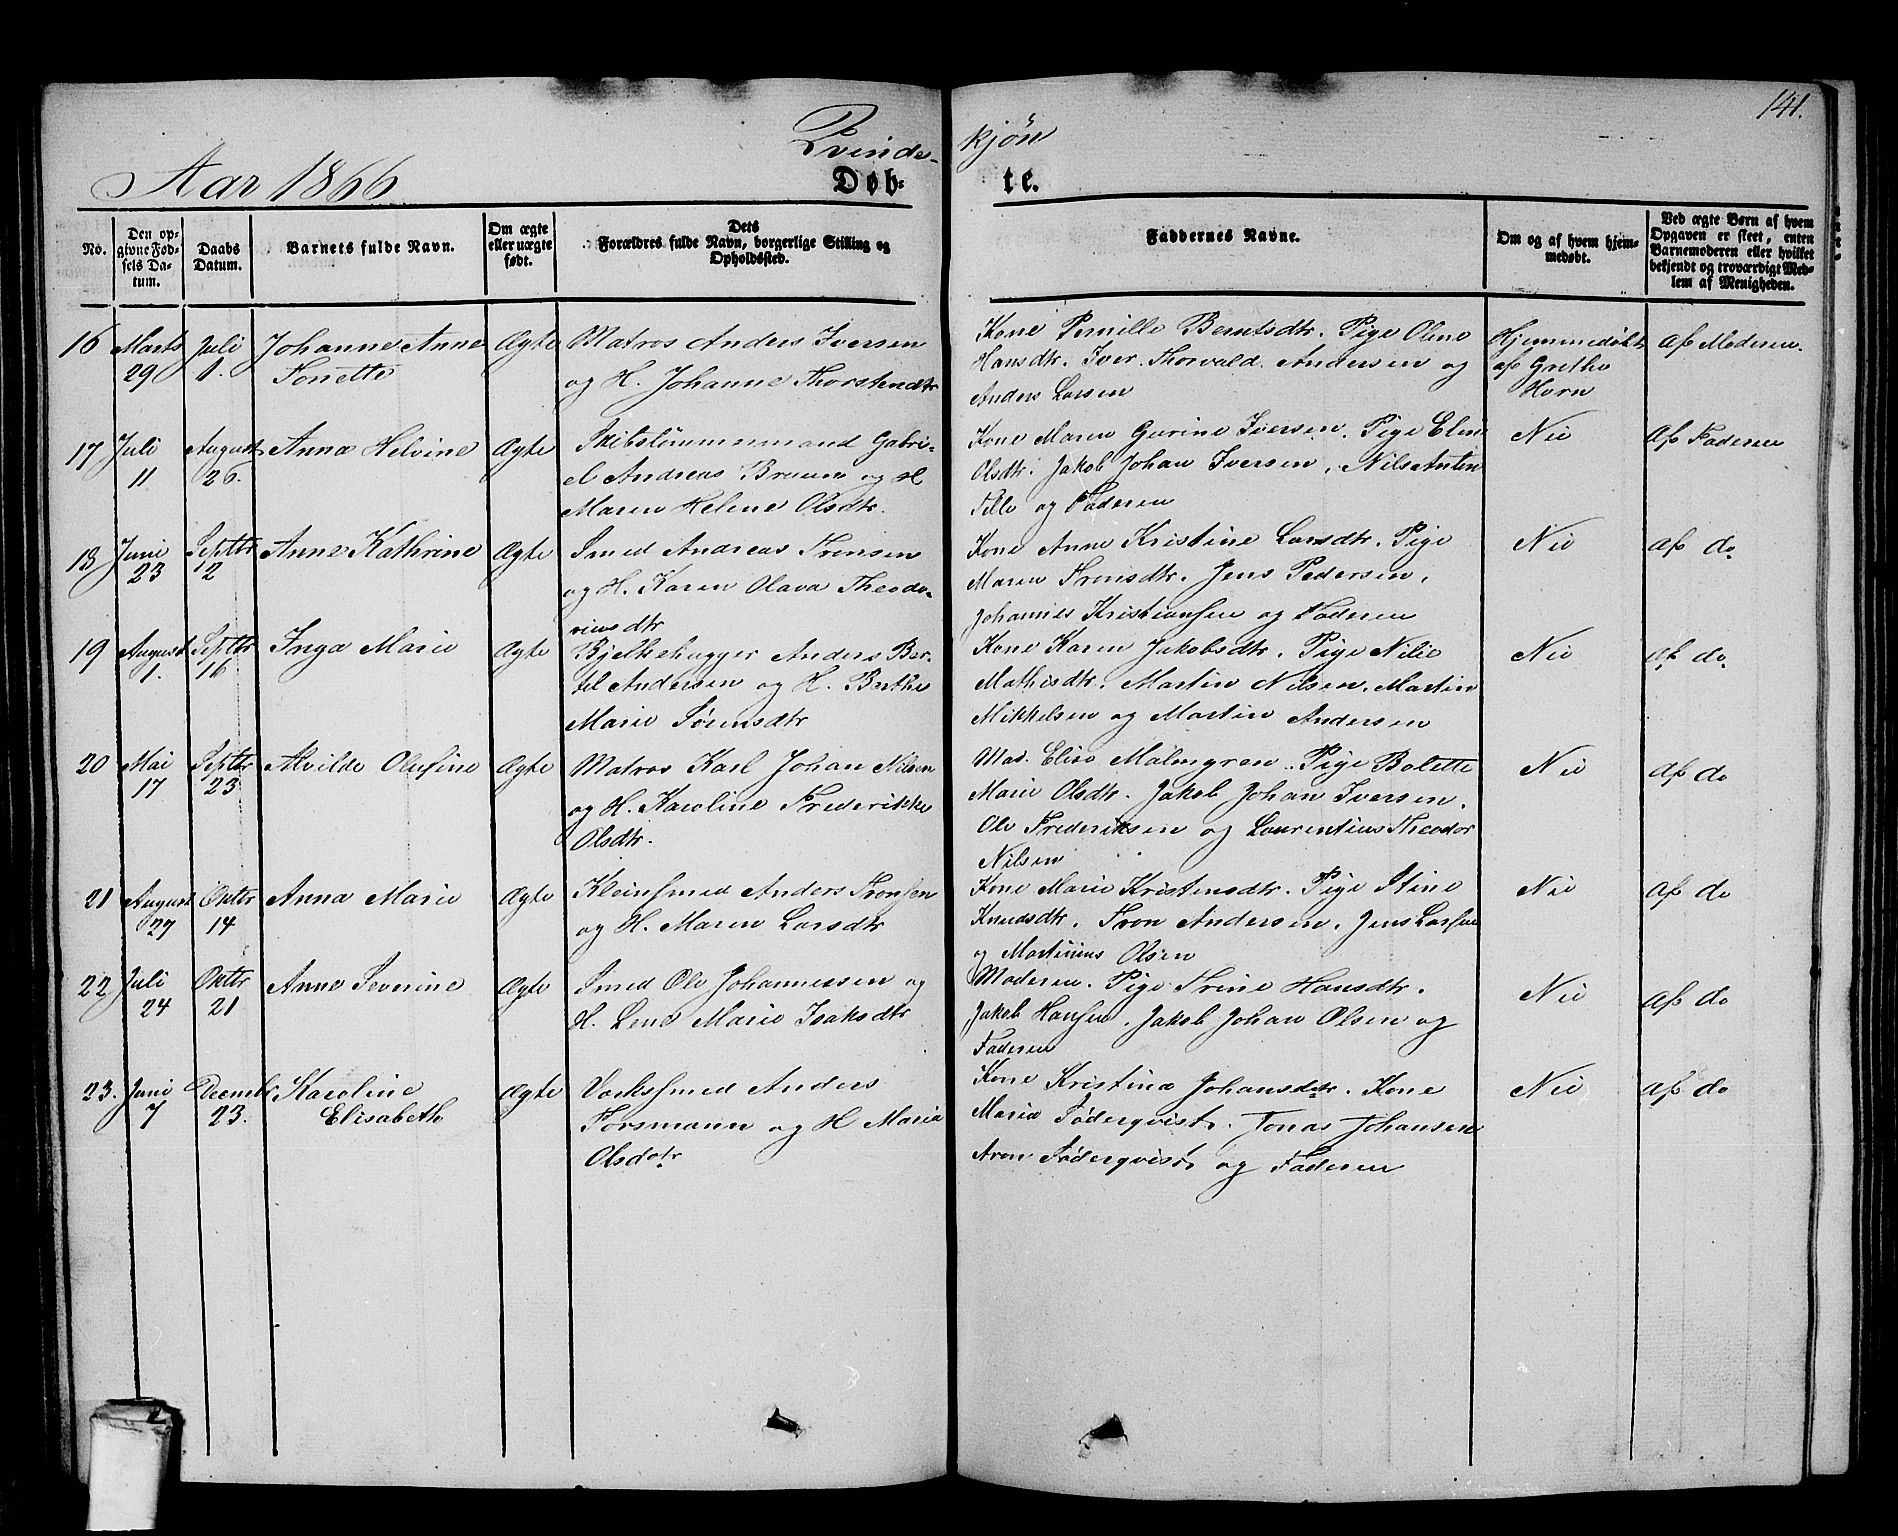 141.
Qvinde- kjøn
Aar 1866
Døb- te.
No.
Den op-
givne Fød-
sels Da-
tum.
Daabs
Datum.
Barnets fulde Navn.
Om ægte
eller uægte
født.
Dets
Forældres fulde Navn, borgerlige Stilling og
Opholdssted.
Faddernes Navne.
Om og af hvem hjem-
medøbt.
Ved ægte Børn af hvem
Opgaven er skeet, enten
Barnemoderen eller hvilket
bekjendt og troværdigt Med-
lem af Menigheden.
16 Marts 29 Juli 1. Johanne Anne
Tonette
Ægte
Matros Anders Iversen
og H. Johanne Thorstendtr
Kone Pernille Berntsdtr. Pige Oline
Hansdtr. Iver Thorvald Andersen og
Anders Larsen
Hjemmedøbt
af Grethe
Horn
af Moderen.
17 Juli 11 August 26. Anna Helvine
Ægte
Skibstømmermand Gabri-
el Andreas Bruun og H
Maren Helene Olsdtr.
Kone Maren Gurine Iversen. Pige Elen
Olsdtr. Jakob Johan Iversen, Nils Anton
Pille og Faderen
Nei
af Faderen
18 Juni 23 Septbr 12 Anne Kathrine
Ægte
Smed Andreas Tronsen
og H. Karen Olava Theodo-
rinsdtr
Kone Anne Kristine Larsdtr. Pige
Maren Tronsdtr. Jens Pedersen,
Johannes Kristiansen og Faderen
Nei
af do
19 August 1. Septbr 16 Inga Marie
Ægte
Bjelkehugger Anders Ber-
tel Andersen og H. Berthe
Marie Sørensdtr
Kone Karen Jakobsdtr. Pige Nilie
Mathisdtr. Martin Nilsen, Martin
Mikkelsen og Martin Andersen
Nei
af do
20 Mai 17 Septbr 23 Alvilde Olufine
Ægte
Matros Karl Johan Nilsen
og H. Karoline Frederikke
Olsdtr.
Mad. Elise Malmgren. Pige Bolette
Marie Olsdtr. Jakob Johan Iversen,
Ole Frederiksen og Laurentius Theodor
Nilsen
Nei
af do
21 August 27 Oktbr 14 Anna Marie
Ægte
Kleinsmed Anders Tronsen
og H. Maren Larsdtr
Kone Marie Kristensdtr. Pige Stine
Knudsdtr. Tron Andersen, Jens Larsen
og Martinius Olsen
Nei
af do
22 Juli 24 Oktbr 21 Anne Severine
Ægte
Smed Ole Johannessen og
H. Lene Marie Isaksdtr
Moderen. Pige Trine Hansdtr.
Jakob Hansen, Jakob Johan Olsen og
Faderen
Nei
af do
23. Juni 7 Decembr 23. Karoline
Elisabeth
Ægte
Værksmed Anders
Forsmann og H Maria
Olsdotr
Kone Kristina Johansdtr. Kone
Maria Søderqvist. Jonas Johansen
Aron Søderqvist og Faderen
Nei
af do